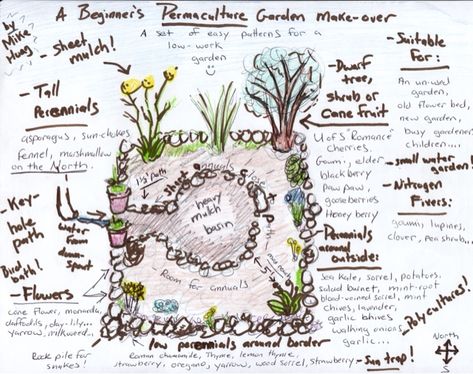 A Beginner's Permaculture Garden Make-over
by Mike Hoag
A set of easy patterns for a
low-work
garden
- sheet mulch!
- Tall
Perennials
asparagus, sun-chokes
fennel, marshmallow
on the North.
- Key-
hole
path
water
from
down-
spout
Bird bath!
- Flowers
cone flower, monarda,
daffodils, day-lily...
yarrow, milkweed...
Rock pile for
snakes!
1 1/2' path
short
annuals
heavy
mulch
basin
path
Room for annuals
low perennials around border
Roman chamomile, Thyme, lemon thyme,
strawberry, oregano, yarrow, wood sorrel, strawberry
- Dwarf
tree,
shrub or
Cane Fruit
U of S "Romance"
cherries.
Goumi, elder
blackberry
paw paw,
gooseberries
Honey berry
- Perennials
around
outside:
sea kale, sorrel, potatoes,
salad burnet, mint-root
blood-veined sorrel, mint
chives, lavender,
garlic chives
walking onions
garlic...
- Suitable
For:
An unused
garden,
old flower bed,
new garden,
busy gardener
children....
- small water
garden!
- Nitrogen
Fixers:
goumi, lupines,
clover, pea shrub
Polycultures!
- Sun trap!
North
S